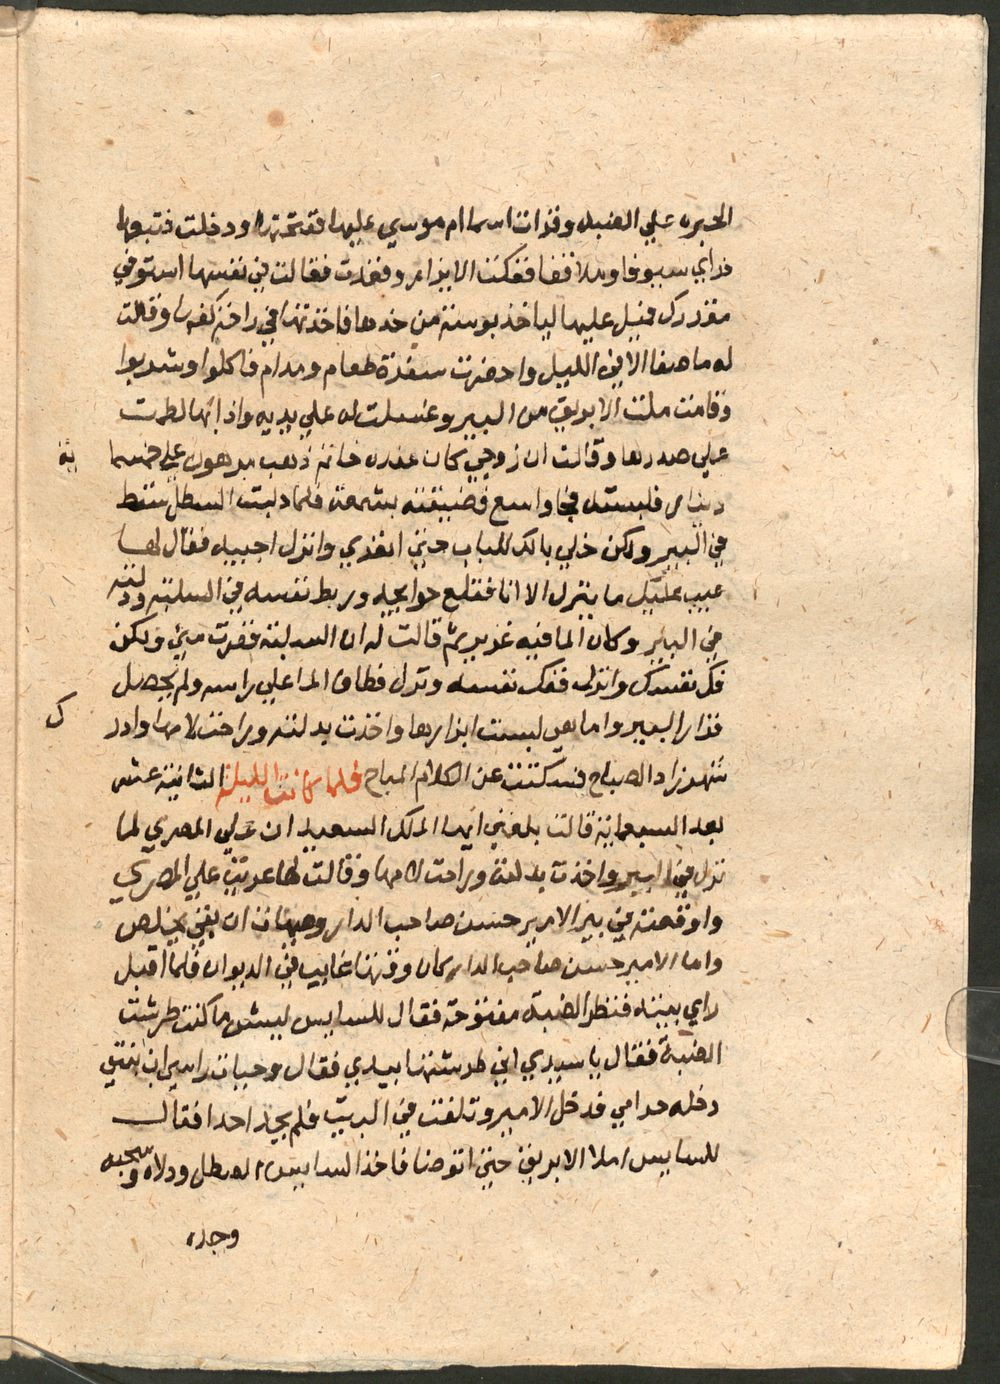 الحبره علي الضبه وقرات اسما ام موسي عليها ففتحتها ودخلت فتبعها
فراي سيوفا وبلاقفا ففكت الايزار وقعدت فقالت في نفسها استوفي
مقدرك فميل عليها لياخذ بوسة من خدها فاخذتها في راحة كفها وقالت
له ما هنا الا في الليل واحضرت سفرة طعام ومدام فاكلوا وشربوا
وقامت ملت الابريق من البير وغسلت له علي يديه واذ انها لطمت
علي صدرها وقالت ان زوجي كان عنده خاتم ذهب مرهون علي خمسما
ية
دينار فلبسته فجا واسع فضيقته بشمعة فلما دليت السطل سقط
في البير ولكن خلي بالك للباب حتي اتعري وانزل اجيبه فقال لها
عيب عليكي ما ينزل الا انا فقلع حوايجه وربط نفسه في السلبه ودلته
في البير وكان الما فيه غويري ثم قالت له ان السلبة قصرت مني ولكن
فك نفسك وانزل ففك نفسه ونزل فطاف الما علي راسه ولم يحصل
ك
قرار البير واما هي لبست ايزارها واخذت بدلته وراحت لامها وادر
شهرزاد الصباح فسكتت عن الكلام المباح فلما كانت الليلة الثانية عشر
بعد السبعماية قالت بلغني ايها الملك السعيد ان علي المصري لما
نزل في البير واخذت بدلته وراحت لامها وقالت لها عريت علي المصري
واوقعته في بير الامير حسن صاحب الدار وهيهات ان بقي يخلص
واما الامير حسن صاحب الدار كان وقتها غايب في الديوان فلما اقبل
راي بيته فنظر الضبة مفتوحة فقال للسايس ليش ما كنت طرشت
الضبة فقال يا سيدي اني طرشتها بيدي فقال وحيات راسي ان بيتي
دخله حرامي فدخل الامير وتلفت في البيت فلم يجد احدا فقال
للسايس املا الابريق حتي اتوضا فاخذ السايس السطل ودلاه وسحبه
وجده